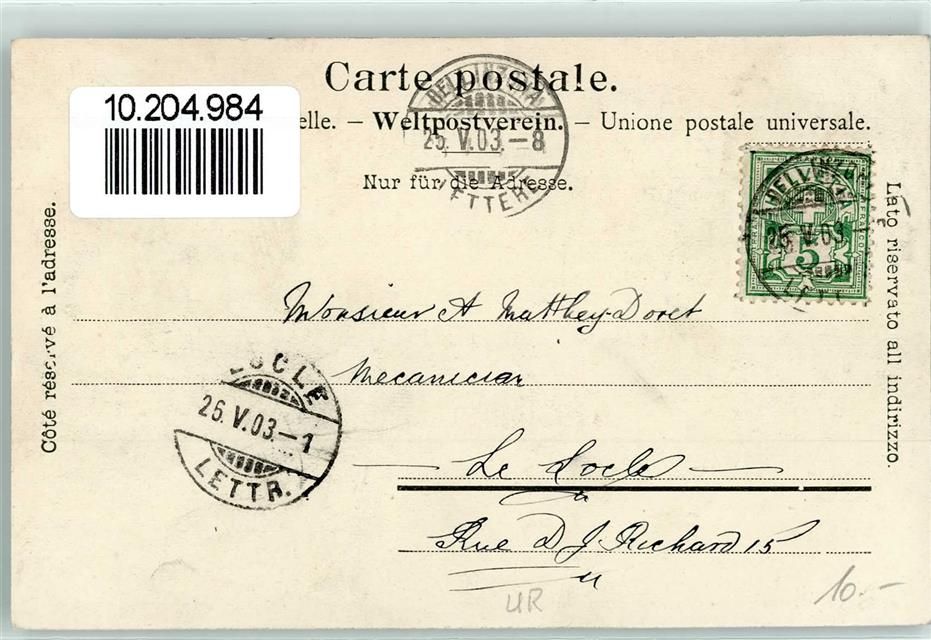 Carte postale.
10.204.984
elle. – Weltpostverein. – Unione postale universale.
BELLINZONA
25. V. 03. – 8
LETTERE
Nur für die Adresse.
HELVETIA
FRANCO
5
BELLINZONA
25. V. 03.
LETT
Côté réservé à l'adresse.
Lato riservato all indirizzo.
Monsieur A Matthey-Doret
Mecanicien
LOCLE
26. V. 03. – 1
LETTR.
Le Locle
Rue D J. Richard 15
UR
10.–